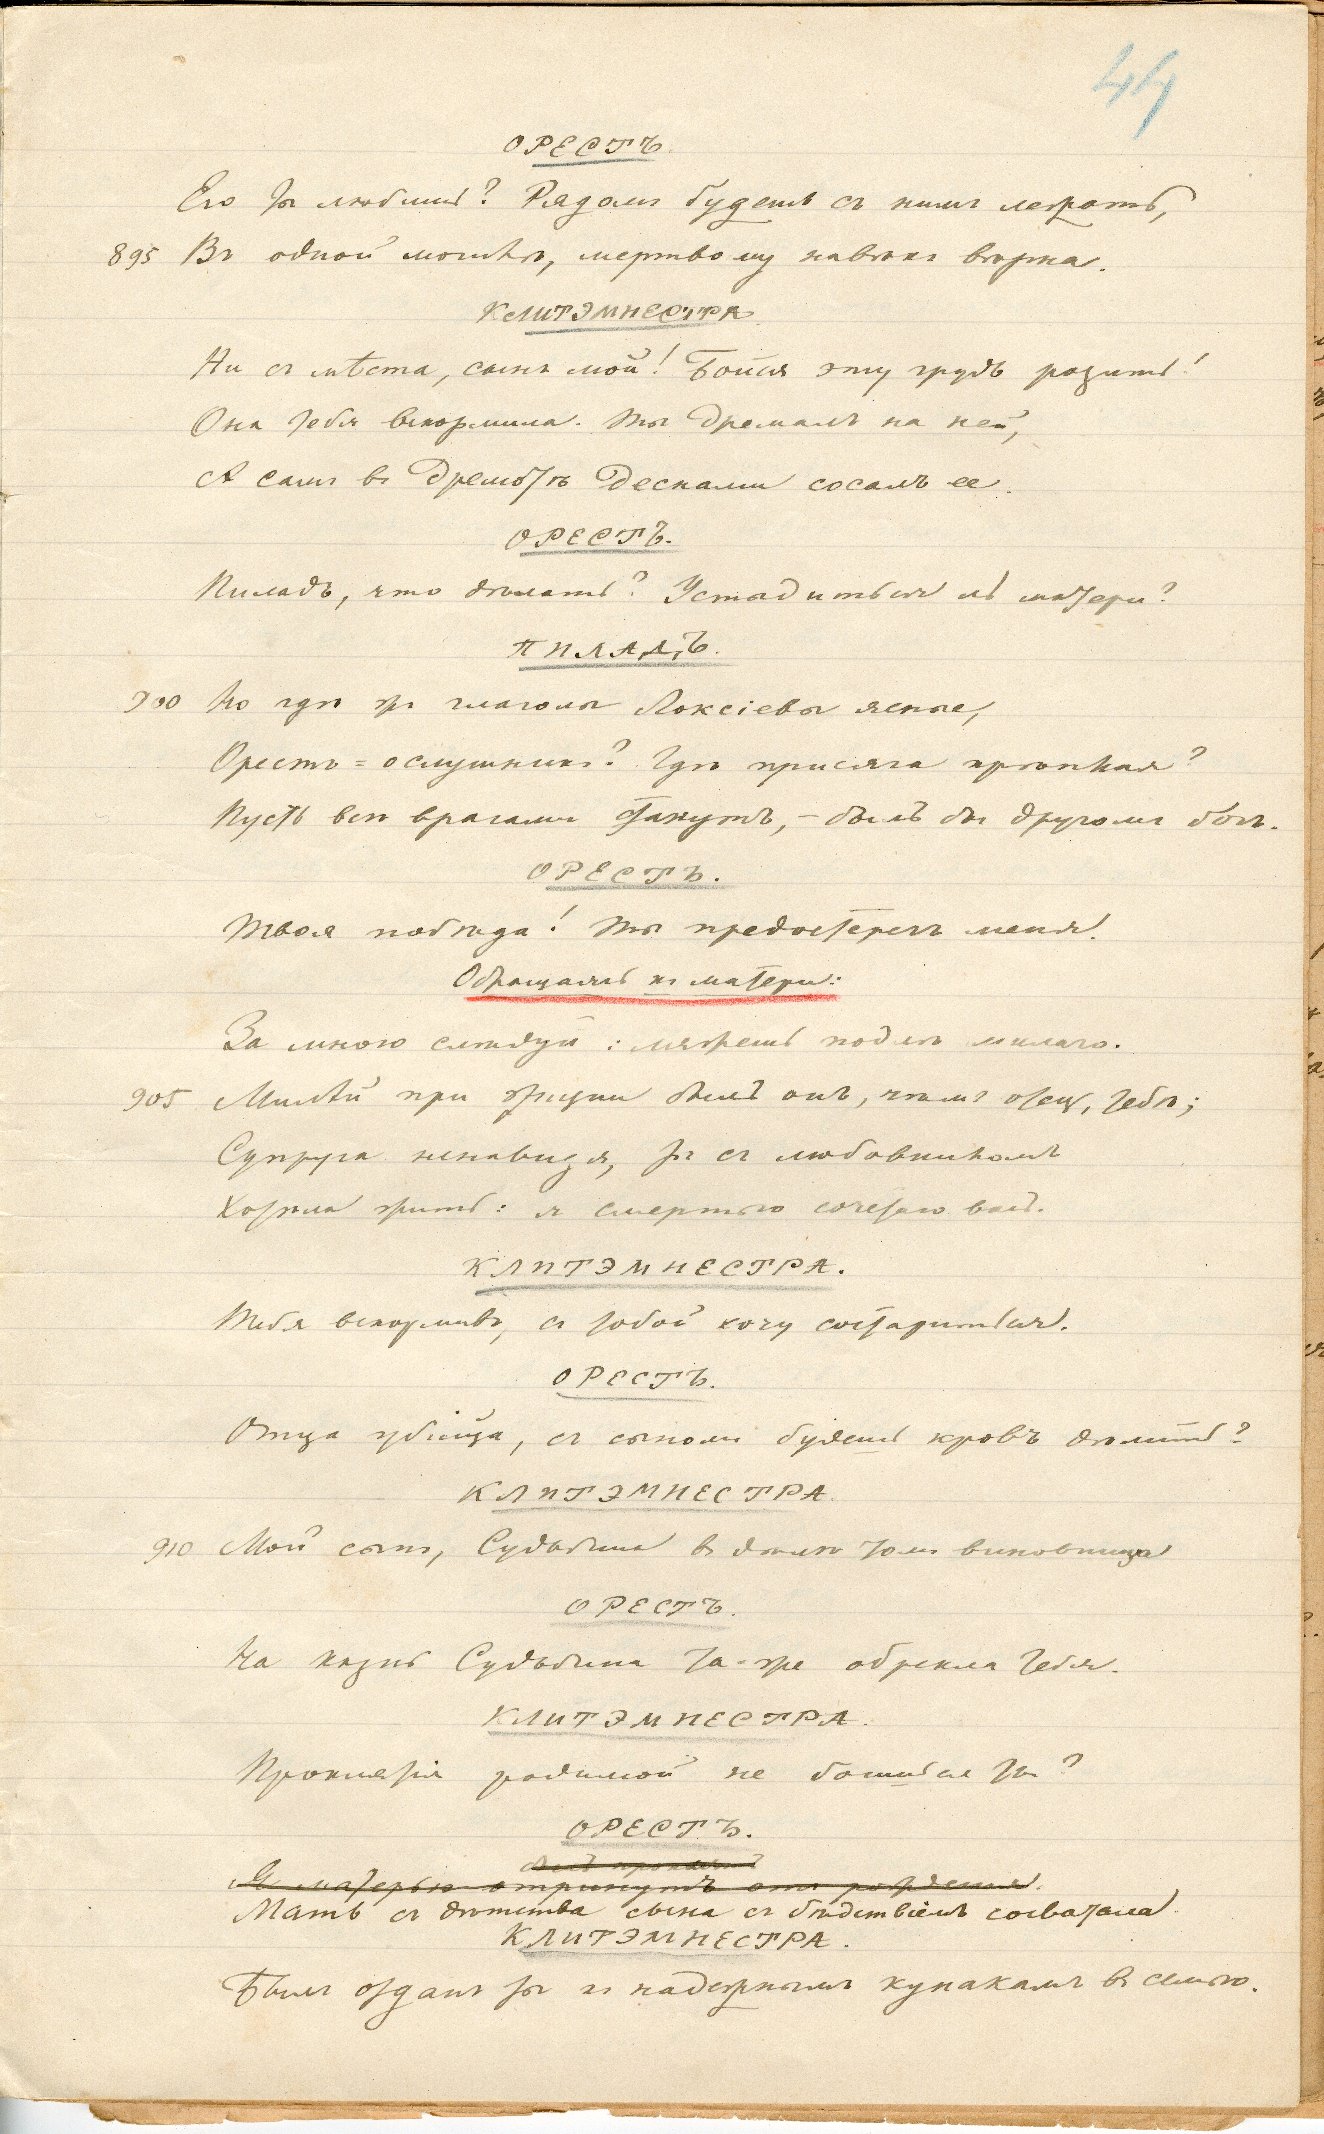 44
ОРЕСТЪ.
Его ты любишь? Рядомъ будешь съ нимъ лежать,
895 Въ одной могилѣ, мертвому навѣкъ вѣрна.
КЛИТЭМНЕСТРА
Ни съ мѣста, сынъ мой! Бойся эту грудь разить!
Она тебя вскормила. Ты дремалъ на ней,
А самъ въ дремотѣ деснами сосалъ ее.
ОРЕСТЪ.
Пиладъ, что дѣлать? Устыдиться ль матери?
ПИЛАДЪ.
900 Но гдѣ жъ глаголы Локсіевы ясные,
Орестъ-ослушникъ? Гдѣ присяга крѣпкая?
Пусть всѣ врагами станутъ, – былъ бы другомъ богъ.
ОРЕСТЪ.
Твоя побѣда! Ты предостерегъ меня.
Обращаясь къ матери:
За мною слѣдуй: ляжешь подлѣ милаго.
905 Милѣй при жизни былъ онъ, чѣмъ отецъ, тебѣ;
Супруга ненавидя, ты съ любовникомъ
Хотѣла жить: я смертью сочетаю васъ.
КЛИТЭМНЕСТРА.
Тебя вскормивъ, съ тобой хочу состариться.
ОРЕСТЪ.
Отца убійца, съ сыномъ будешь кровъ дѣлить?
КЛИТЭМНЕСТРА.
910 Мой сынъ, Судьбина въ дѣлѣ томъ виновница
ОРЕСТЪ.
На казнь Судьбина та-же обрекла тебя.
КЛИТЭМНЕСТРА.
Проклятія родимой не боишься ты?
ОРЕСТЪ.
Я матерью отринутъ отъ рожденія.
Мать съ дѣтства сына съ бѣдствіемъ сосватала.
КЛИТЭМНЕСТРА.
Былъ отданъ ты къ надежнымъ кунакамъ въ семью.